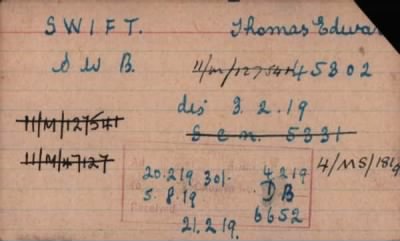 SWIFT. Thomas Edwar
S W B. 11/M/127541 45802
dis 3.2.19
11/M/127541
S c n. 5331
11/M/47127 4/MS/1819
20.2.19 301. 4.2.19
5.8.19 DB
6652
21.2.19.